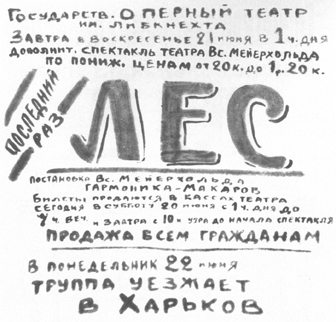 Государств. Оперный театр
им. Либкнехта
Завтра в воскресенье 21 июня в 1 ч. дня
дополнит. спектакль театра Вс. Мейерхольда
по пониж. ценам от 20 к. до 1 р. 20 к.
Последний
раз
ЛЕС
Постановка Вс. Мейерхольда
Гармоника-Макаров
Билеты продаются в кассах театра
сегодня в субботу 20 июня с 1 ч. дня до
ч. веч. и завтра с 10 ч утра до начала спектакля
Продажа всем гражданам
В понедельник 22 июня
труппа уезжает
в Харьков